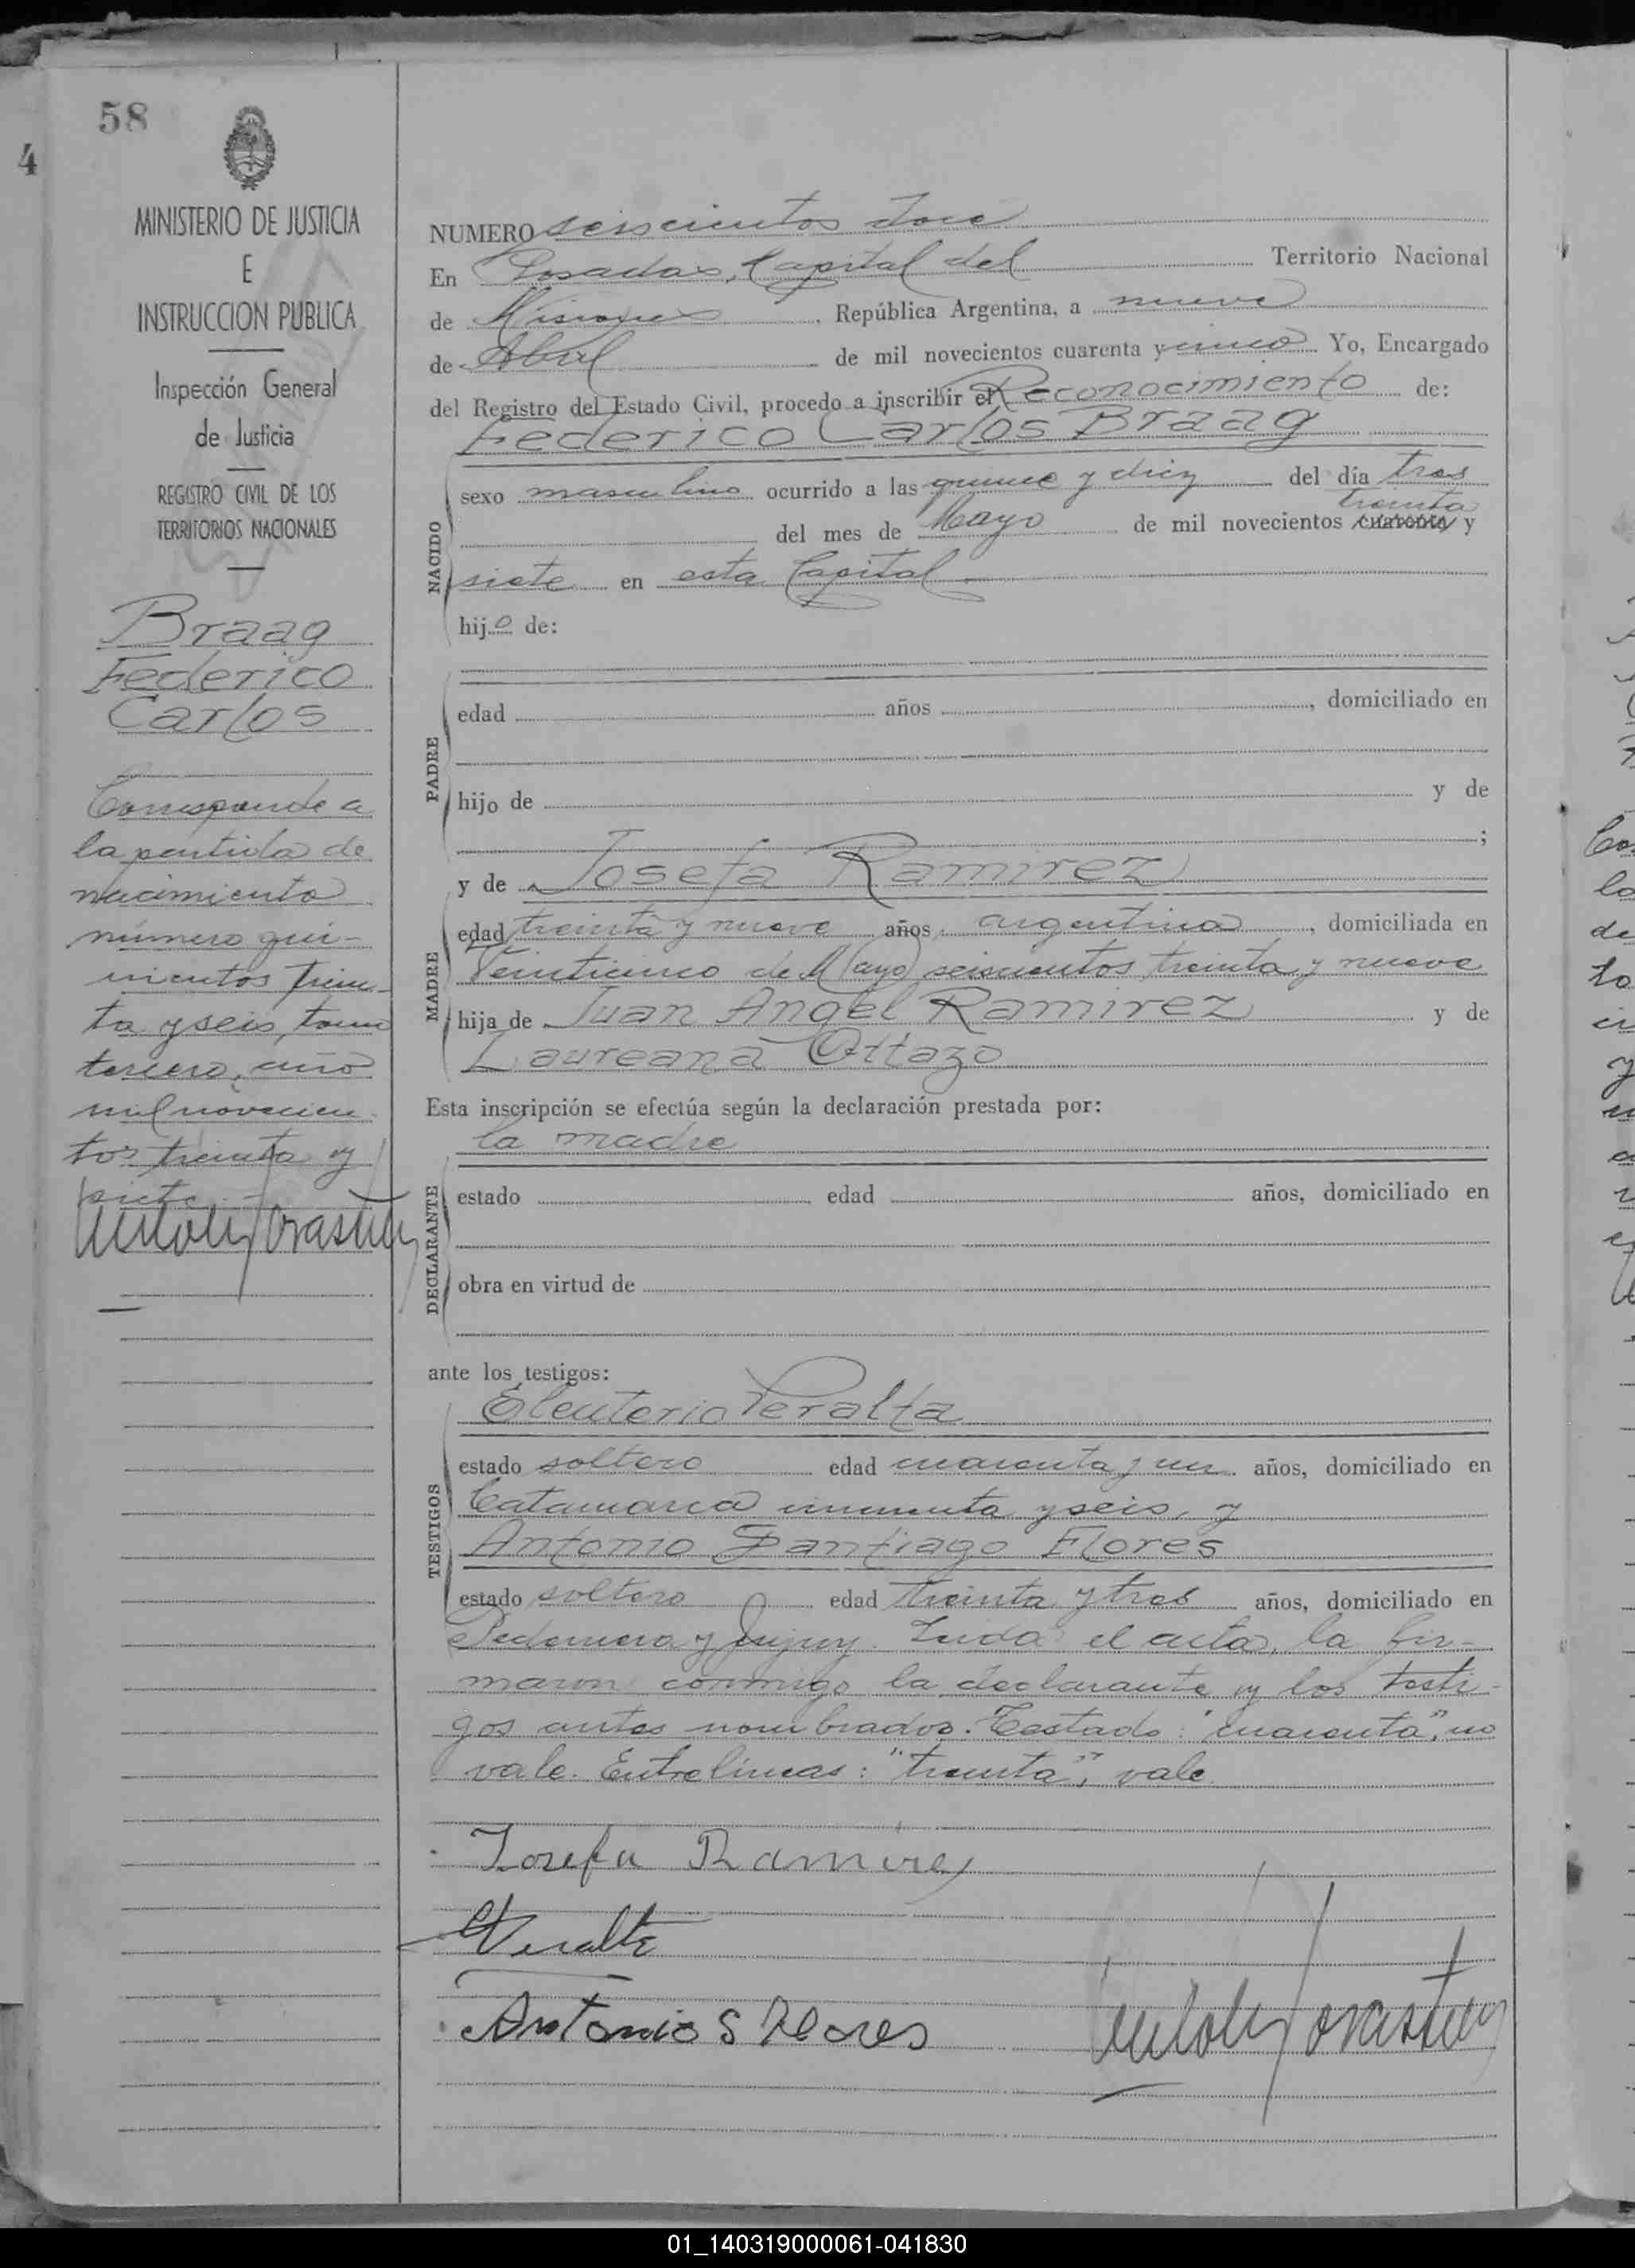 58
4
MINISTERIO DE JUSTICIA
E
INSTRUCCION PUBLICA
Inspección General
de Justicia
REGISTRO CIVIL DE LOS
TERRITORIOS NACIONALES
Braag
Federico
Carlos
Corresponde a
la partida de
nacimiento
número qui-
nientos trein-
ta y seis, tomo
tercero, año
mil novecien
tos treinta y
siete.
NUMERO seiscientos doce
En Posadas, Capital del Territorio Nacional
de Misiones, República Argentina, a nueve
de Abril de mil novecientos cuarenta y cinco Yo, Encargado
del Registro del Estado Civil, procedo a inscribir el Reconocimiento de:
Federico Carlos Braag
NACIDO
sexo masculino ocurrido a las quince y diez del día tres
treinta
del mes de Mayo de mil novecientos cuarenta y
siete en esta Capital.
hijo de:
PADRE
edad años , domiciliado en
hijo de y de
;
MADRE
y de Josefa Ramirez
edad treinta y nueve años, argentina, domiciliada en
Veinticinco de Mayo seiscientos treinta y nueve
hija de Juan Angel Ramirez y de
Laureana Ottazo
Esta inscripción se efectúa según la declaración prestada por:
la madre
DECLARANTE
estado edad años, domiciliado en
obra en virtud de
ante los testigos:
TESTIGOS
Eleuterio Peralta
estado soltero edad cuarenta y un años, domiciliado en
Catamarca cincuenta y seis, y
Antonio Santiago Flores
estado soltero edad treinta y tres años, domiciliado en
Pedernera y Jujuy. Leida el acta, la fir-
maron conmigo la declarante y los testi-
gos antes nombrados. Testado: "cuarenta", no
vale. Entrelíneas: "treinta", vale.
Josefa Ramirez
Peralta
Antonio S Flores
01_140319000061-041830